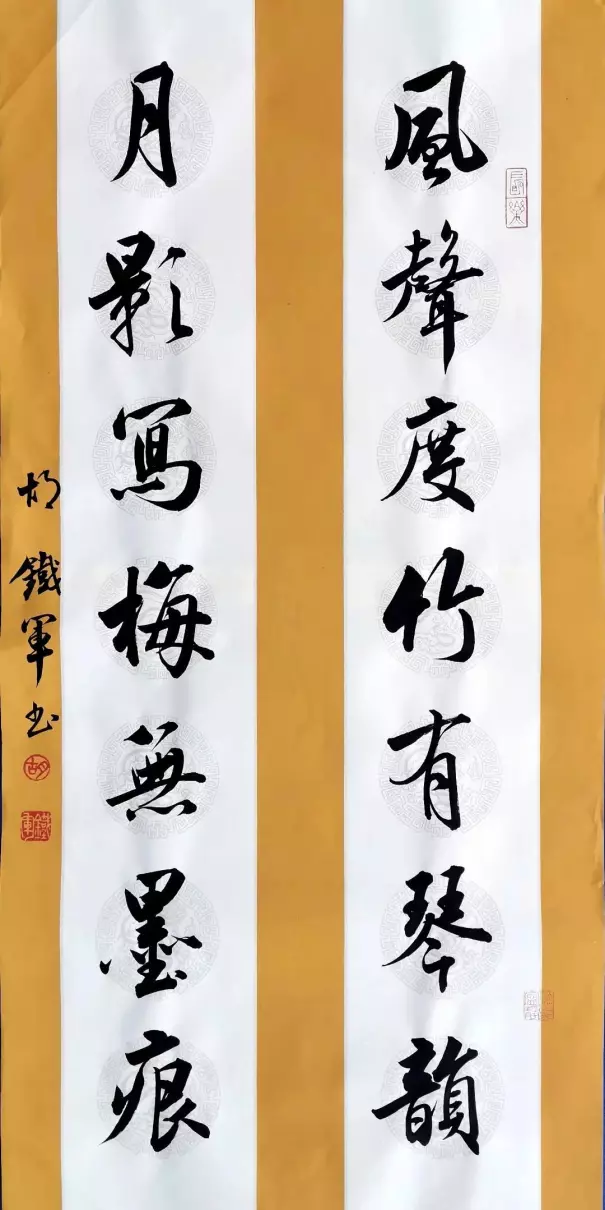 風聲度竹有琴韻
月影寫梅無墨痕
胡鐵軍书